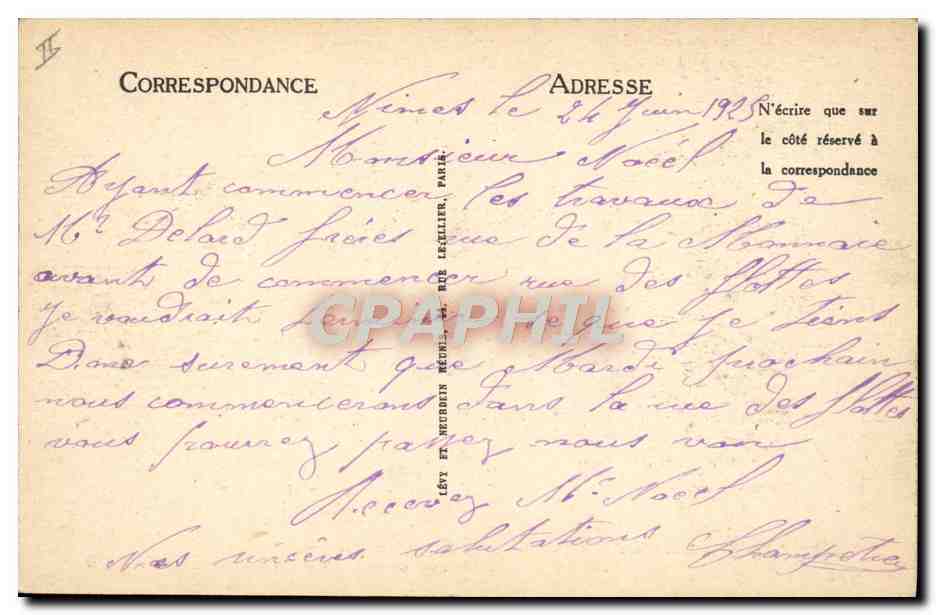 II
CORRESPONDANCE
ADRESSE
N'écrire que sur
le côté réservé à
la correspondance
Nimes le 24 Juin 1925
Monsieur Noéel
Ayant commencer les travaux de
Mr Delard frères rue de la Monnaie
avant de commencer rue des flottes
Je voudrait ce que je tiens
surement que Mardi prochain
nous commencerons dans la rue des flottes
vous pourrez passez nous voir
Recevez Mr Noéel
Nos sincères salutations
LÉVY ET NEURDEIN RÉUNIS, 44, RUE LETELLIER, PARIS.
CPAPHIL